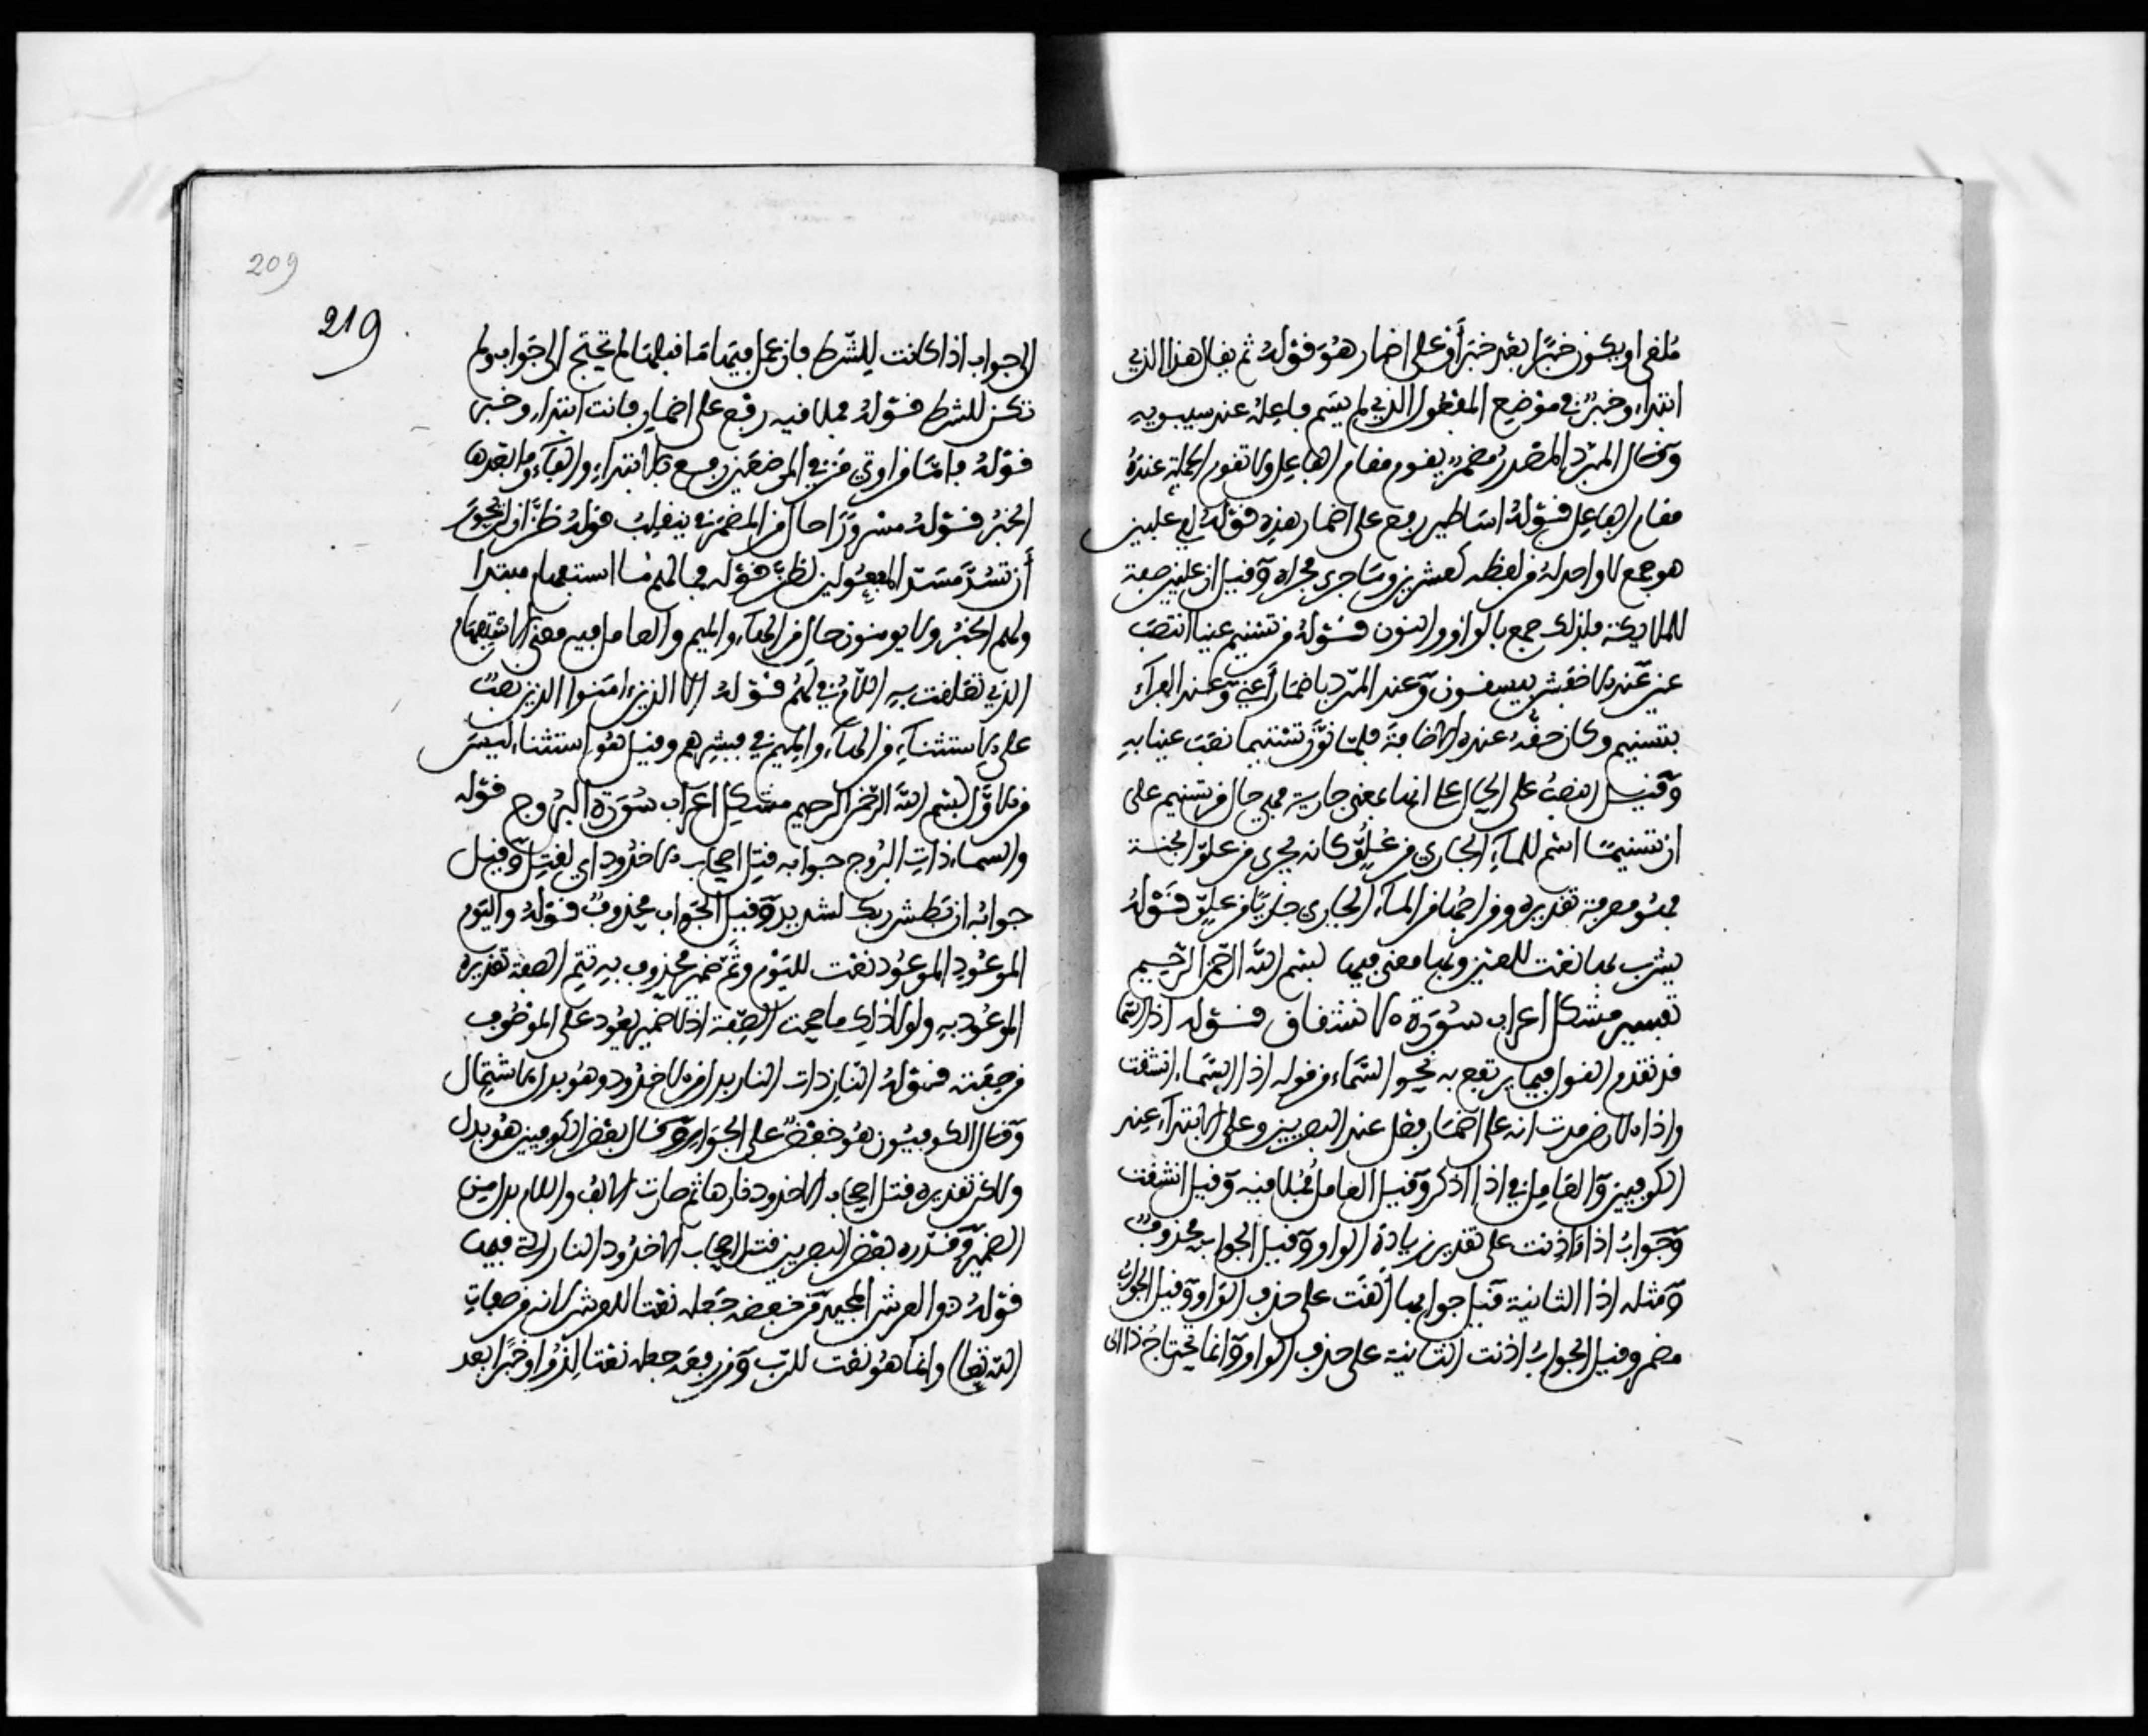 ملغى او يكون خبرا بعد خبر أو على اضمار هو قوله ثم يقال هذا الذي
ابتداء وخبر في موضع المفعول الذي لم يسم فاعله عند سيبويه
وقال المبرد المصدر مضمر يقوم مقام الفاعل ولا تقوم الجملة عنده
مقام الفاعل قوله اساطير رفع على اضمار هذه قوله لفي عليين
هو جمع لا واحد له من لفظه كعشرين وشبهه جرى مجراه وقيل ان عليين صفة
للملايكة فلذلك جمع بالواو والنون قوله من تسنيم عينا انتصب
عين عند الاخفش بيسقون وعند المبرد باضمار أعني وعند الفراء
بتسنيم وكان حقه عنده الاضافة فلما نون تسنيما نصب عينا به
وقيل انتصب على الحال على انها بمعنى جارية فهي حال من تسنيم على
ان تسنيما اسم للماء الجاري من علو كانه يجري من علو الجنة
فهو معرفة تقديره ومزاجها من الماء الجاري جاريا من علو قوله
يشرب بها نعت للعين وبها معنى فيها بسم الله الرحمن الرحيم
تفسير مشكل اعراب سورة الانشقاق قوله اذا السما
قد تقدم القول فيما يرتفع به نحو السماء من قوله اذا السماء انشقت
واذا الارض مدت انه على اضمار فعل عند البصريين وعلى الابتداء عند
الكوفيين والعامل في اذا اذكر وقيل العامل فملافيه وقيل انشقت
وجواب اذا اذنت على تقدير زيادة الواو وقيل الجواب محذوف
ومثله اذا الثانية قيل جوابها ألقت على حذف الواو وقيل الجواب
مضمر وقيل الجواب اذنت الثانية على حذف الواو وانما يحتاج اذا الى
209
219
الى جواب اذا كانت للشرط فان عمل فيها ما قبلها لم تحتج الى جواب ولم
تكن للشرط قوله فملافيه رفع على اضمار فانت ابتداء وخبر
قوله فاما من اوتي من في الموضعين رفع بالابتداء والفاء وما بعدها
الخبر قوله مسرورا حال من المضمر في ينقلب قوله ظن ان لن يحور
أن تسد مسد المفعولين لظن قوله فما لهم ما استفهام مبتدا
ولهم الخبر ولا يومنون حال من الهاء والميم والعامل فيه معنى الاستفهام
الذي تعلقت به اللام في لهم قوله الا الذين ءامنوا الذين نصب
على الاستثناء من الهاء والميم في فبشرهم وقيل هو استثناء ليس
من الاول بسم الله الرحمن الرحيم مشكل اعراب سورة البروج قوله
والسماء ذات البروج جوابه قتل اصحاب الاخدود اي لقتل وقيل
جوابه ان بطش ربك لشديد وقيل الجواب محذوف قوله واليوم
الموعود الموعود نعت لليوم وثم ضمير محذوف به تتم الصفة تقديره
الموعود به ولولا ذلك ما صحت الصفة اذ لا ضمير يعود على الموصوف
من صفته قوله النار ذات النار بدل من الاخدود وهو بدل الاشتمال
وقال الكوفيون هو خفض على الجوار وقال بعض الكوفيين هو بدل
ولاكن تقديره قتل اصحاب الاخدود نارها ثم صارت الالف واللام بدلا من
الضمير وقدره بعض البصريين قتل اصحاب الاخدود النار التي فيها
قوله ذو العرش المجيد من خفضه جعله نعتا للعرش لانه من صفات
الله تعا) وانما هو نعت للرب ومن رفعه جعله نعتا لذو او خبرا بعد